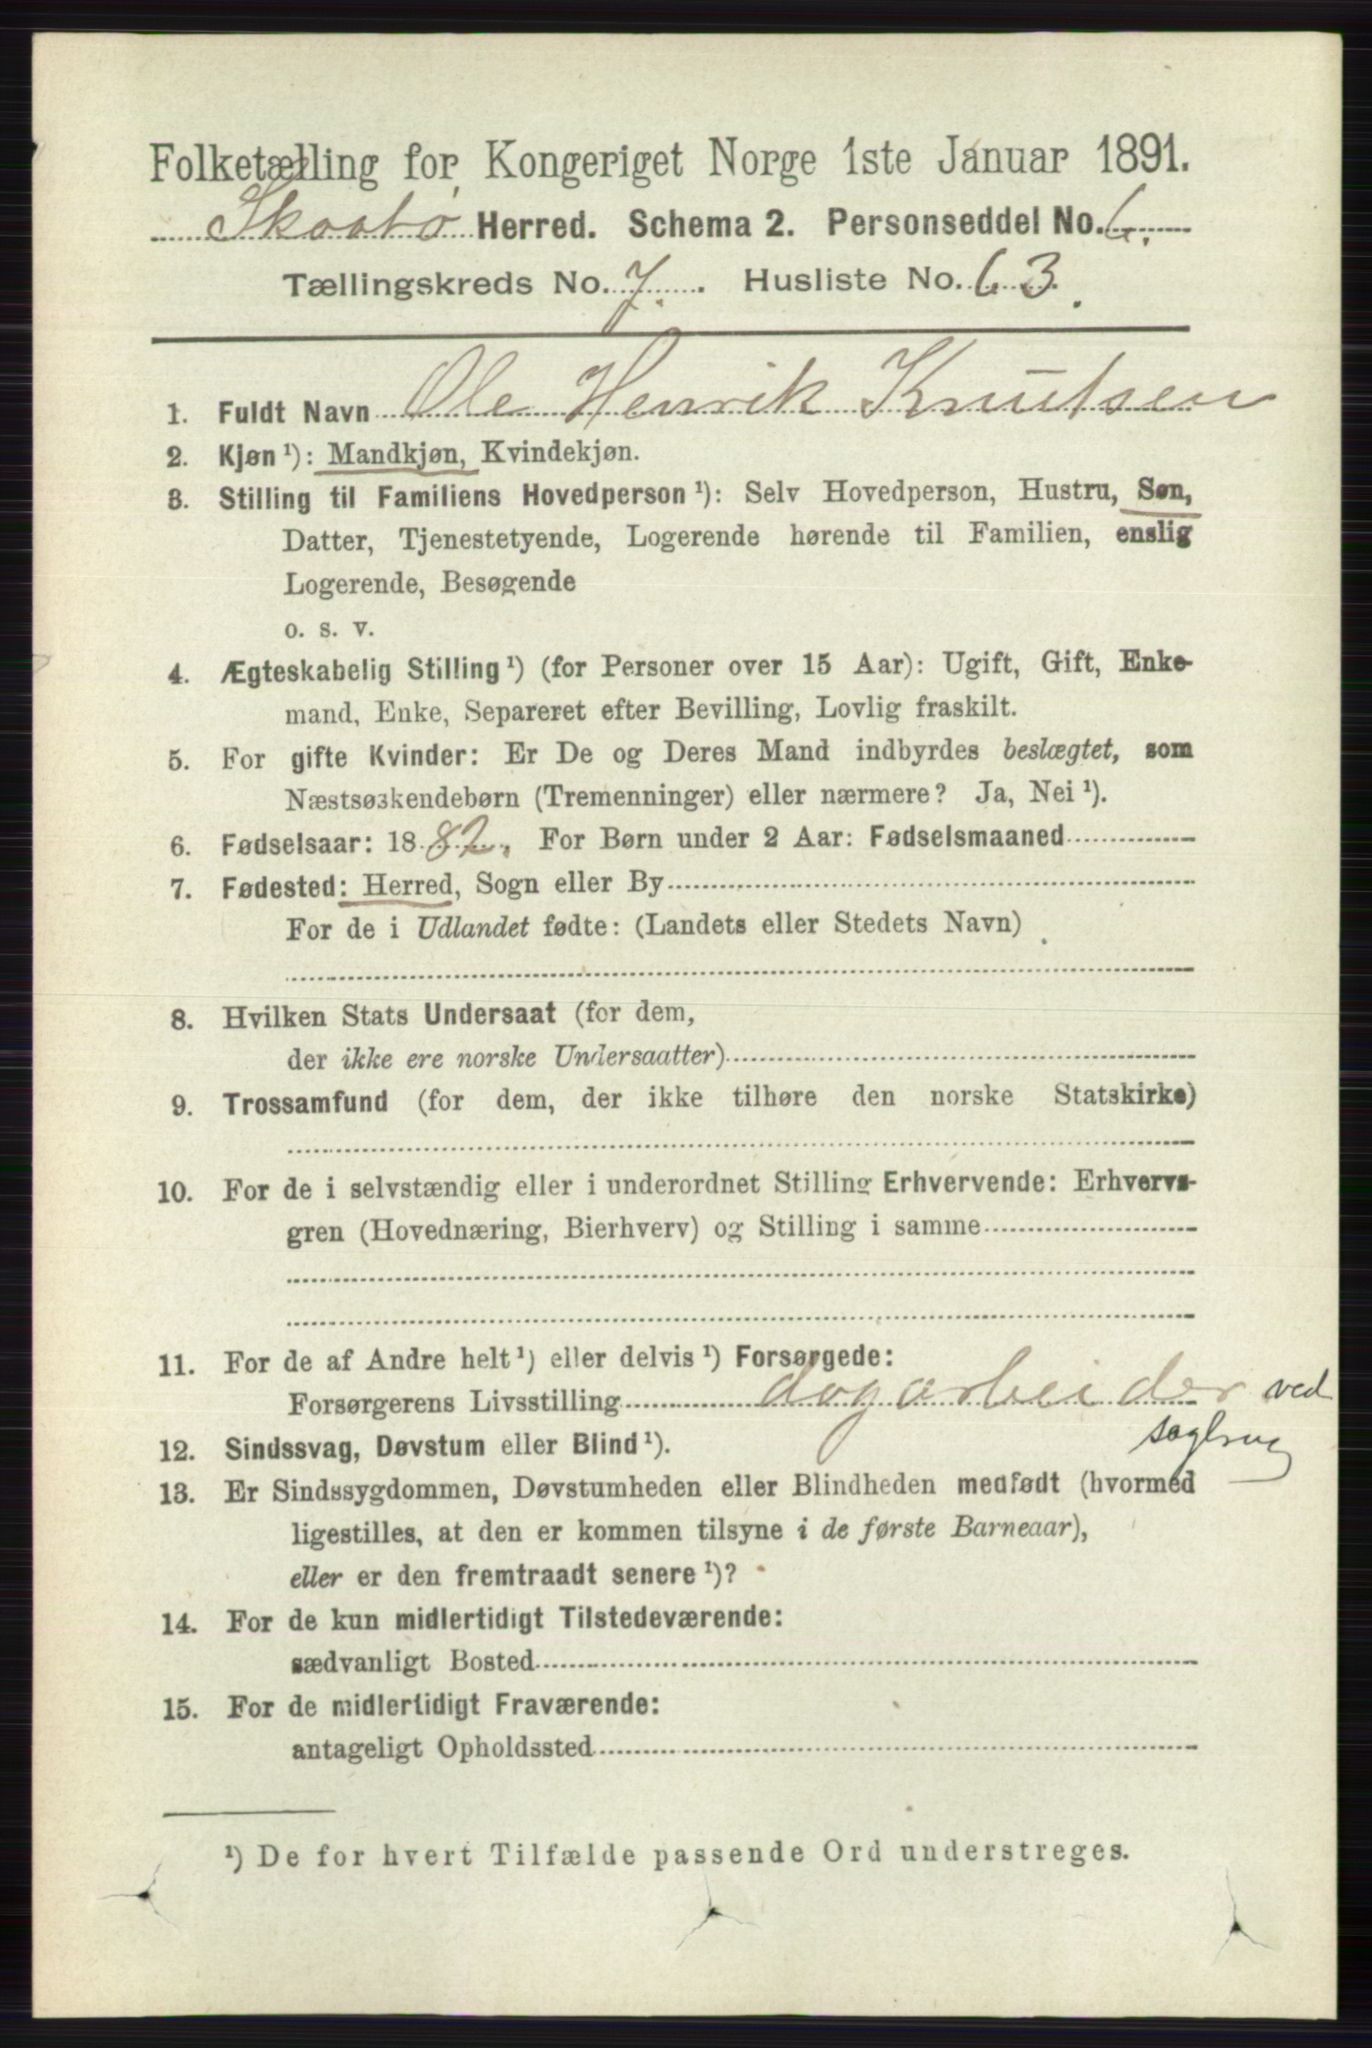 Folketælling for Kongeriget Norge 1ste Januar 1891.
Skaatø Herred. Schema 2. Personseddel No. 6.
Tællingskreds No. 7. Husliste No. 63.
1. Fuldt Navn Ole Henrik Knutsen
2. Kjøn ¹): Mandkjøn, Kvindekjøn.
3. Stilling til Familiens Hovedperson ¹): Selv Hovedperson, Hustru, Søn,
Datter, Tjenestetyende, Logerende hørende til Familien, enslig
Logerende, Besøgende
o. s. v.
4. Ægteskabelig Stilling ¹) (for Personer over 15 Aar): Ugift, Gift, Enke-
mand, Enke, Separeret efter Bevilling, Lovlig fraskilt.
5. For gifte Kvinder: Er De og Deres Mand indbyrdes beslægtet, som
Næstsøskendebørn (Tremenninger) eller nærmere? Ja, Nei ¹).
6. Fødselsaar: 1882. For Børn under 2 Aar: Fødselsmaaned
7. Fødested: Herred, Sogn eller By
For de i Udlandet fødte: (Landets eller Stedets Navn)
8. Hvilken Stats Undersaat (for dem,
der ikke ere norske Undersaatter)
9. Trossamfund (for dem, der ikke tilhøre den norske Statskirke)
10. For de i selvstændig eller i underordnet Stilling Erhvervende: Erhvervs-
gren (Hovednæring, Bierhverv) og Stilling i samme
11. For de af Andre helt ¹) eller delvis ¹) Forsørgede:
Forsørgerens Livsstilling dagarbeider ved
sagbrug
12. Sindssvag, Døvstum eller Blind ¹).
13. Er Sindssygdommen, Døvstumheden eller Blindheden medfødt (hvormed
ligestilles, at den er kommen tilsyne i de første Barneaar),
eller er den fremtraadt senere ¹)?
14. For de kun midlertidigt Tilstedeværende:
sædvanligt Bosted
15. For de midlertidigt Fraværende:
antageligt Opholdssted
¹) De for hvert Tilfælde passende Ord understreges.